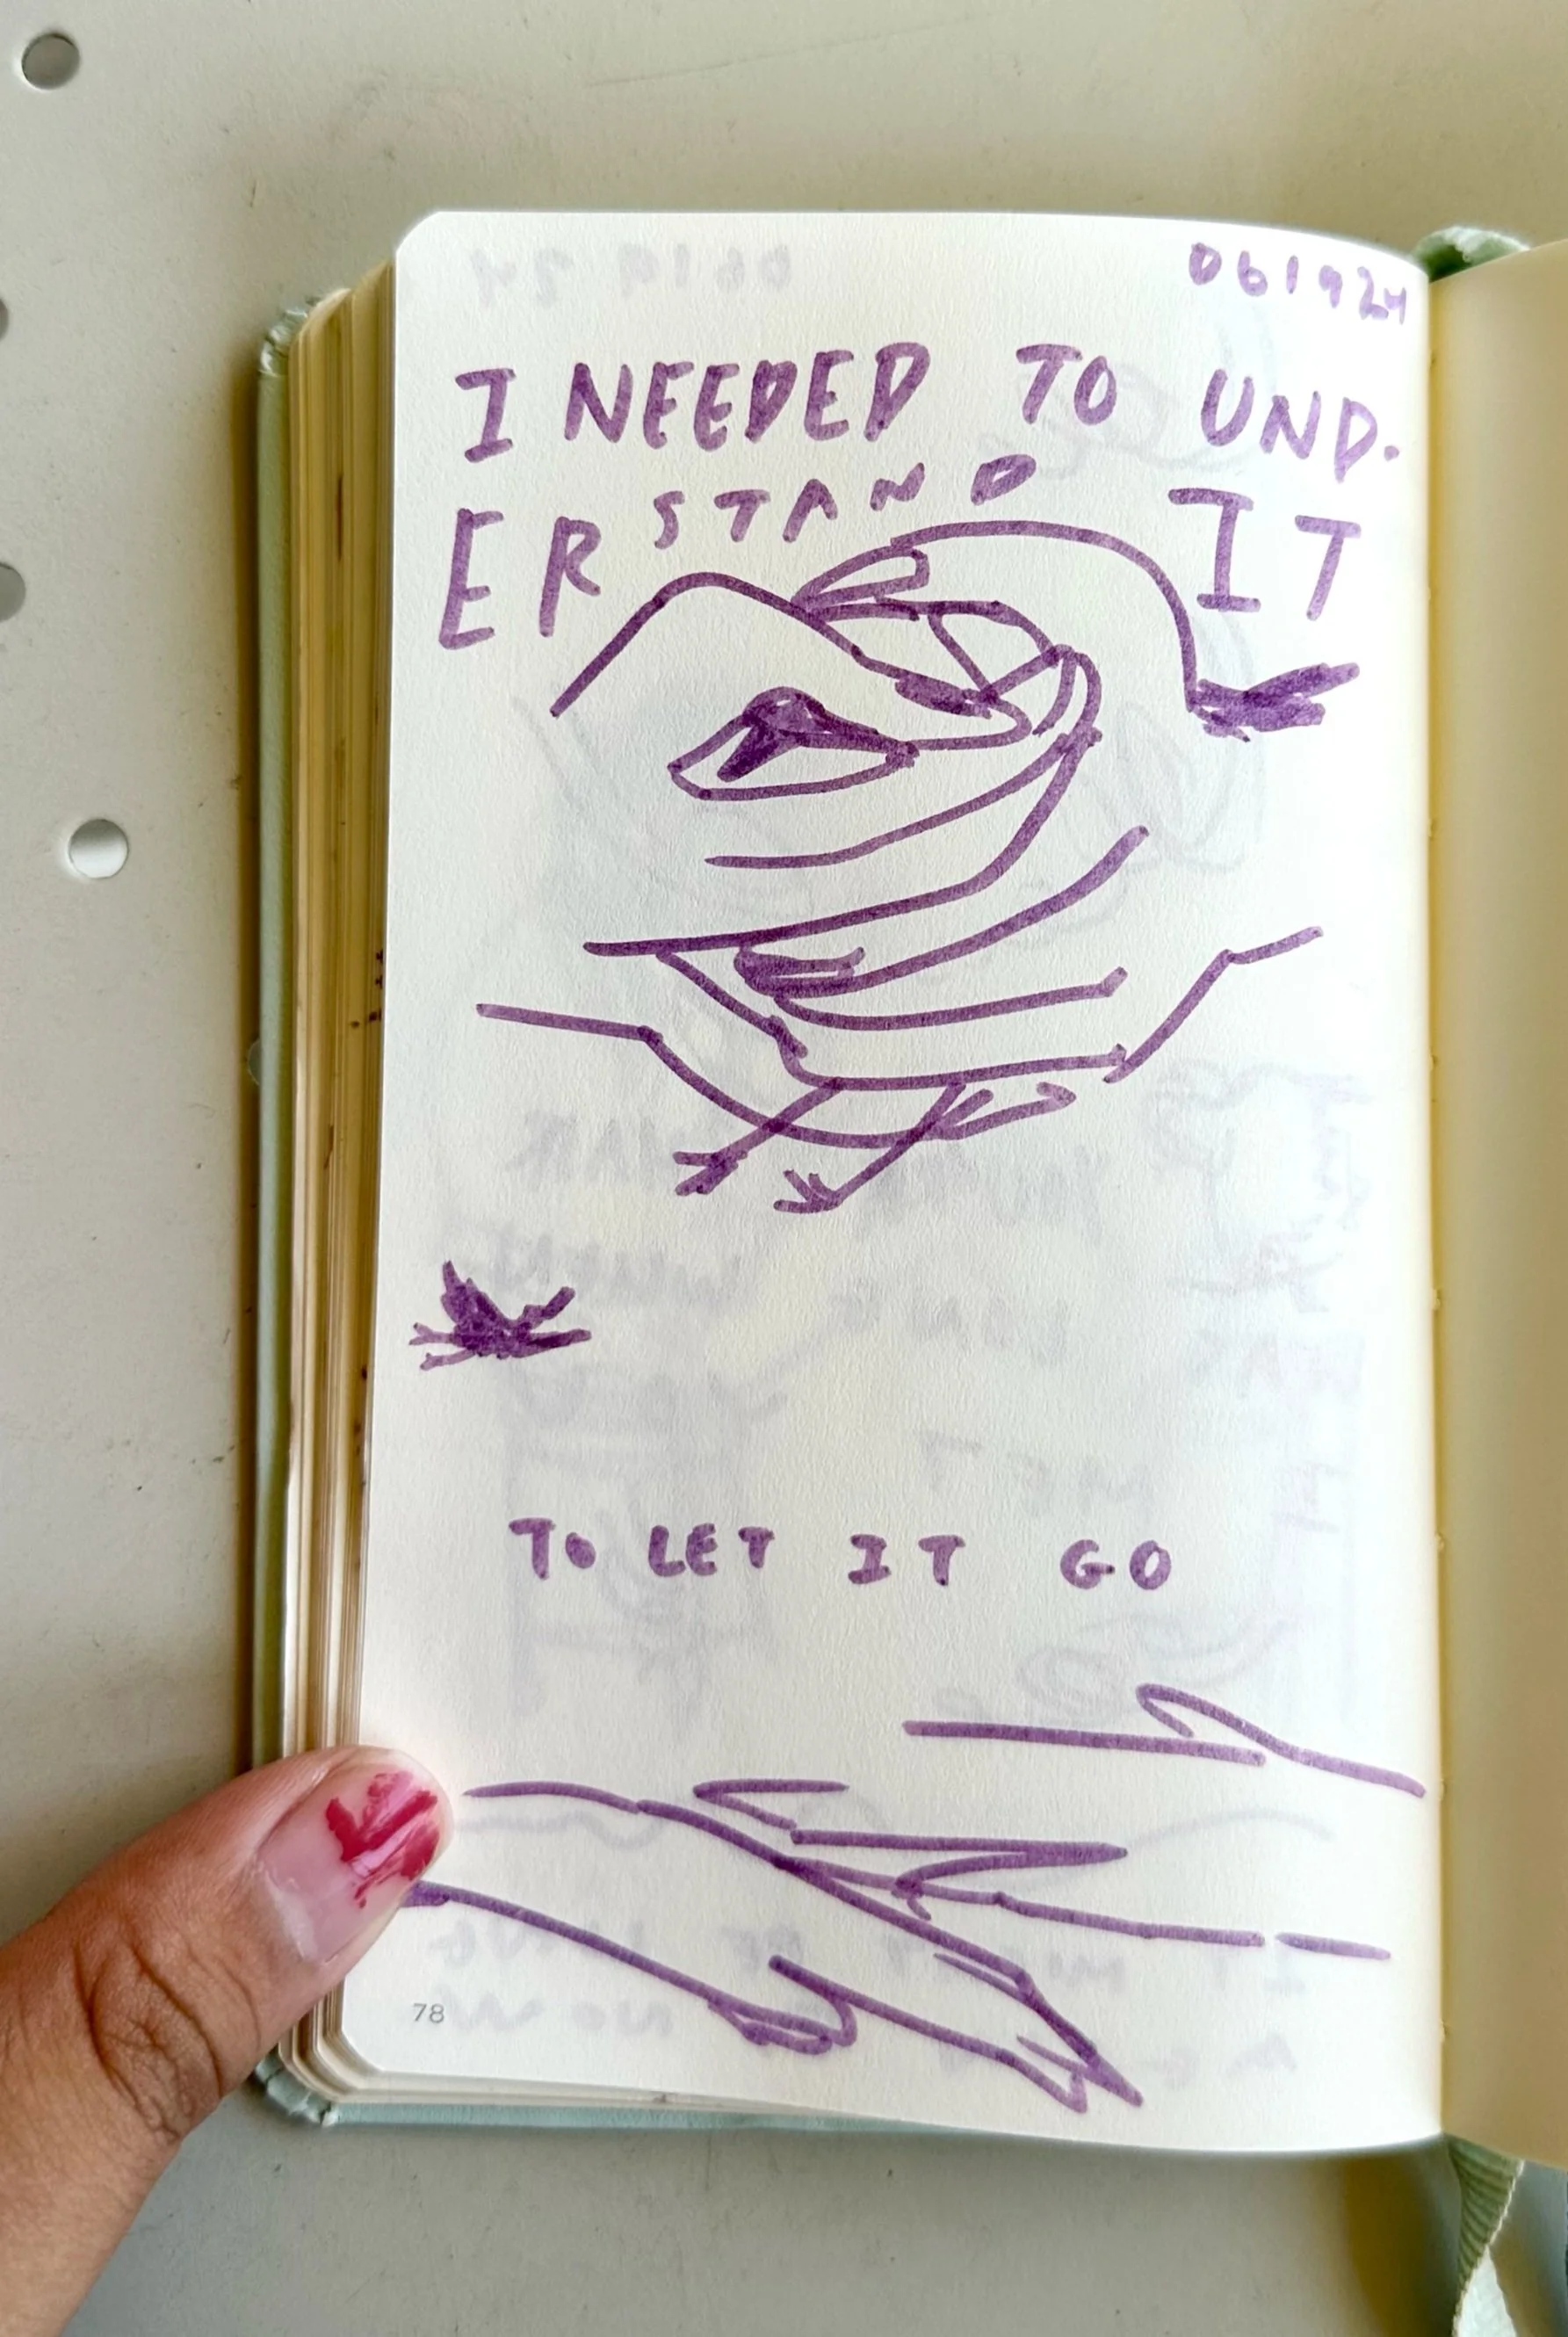 061924
I NEEDED TO UND.
ERSTAND IT
TO LET IT GO
78